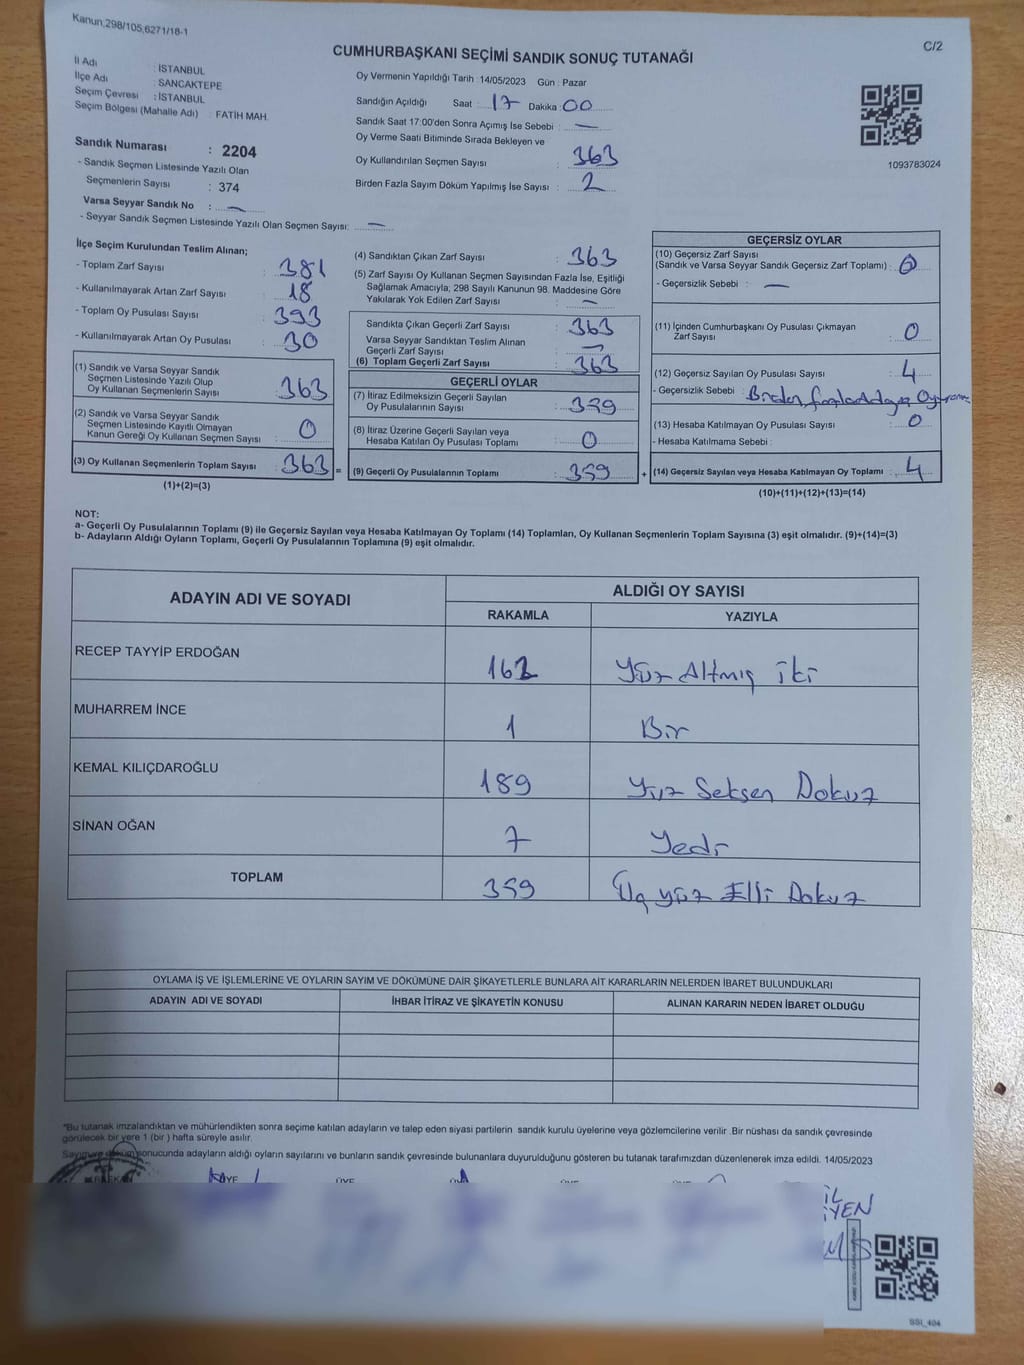 Kanun,298/105,6271/18-1
C/2
CUMHURBAŞKANI SEÇİMİ SANDIK SONUÇ TUTANAĞI
İl Adı : İSTANBUL
İlçe Adı : SANCAKTEPE
Seçim Çevresi : İSTANBUL
Seçim Bölgesi (Mahalle Adı) : FATİH MAH.
Oy Vermenin Yapıldığı Tarih : 14/05/2023 Gün : Pazar
Sandığın Açıldığı Saat : 17 Dakika : 00
Sandık Saat 17:00'den Sonra Açımış İse Sebebi : —
Oy Verme Saati Bitiminde Sırada Bekleyen ve
Oy Kullandırılan Seçmen Sayısı : 363
Birden Fazla Sayım Döküm Yapılmış İse Sayısı : 2
1093783024
Sandık Numarası : 2204
- Sandık Seçmen Listesinde Yazılı Olan
Seçmenlerin Sayısı : 374
Varsa Seyyar Sandık No : —
- Seyyar Sandık Seçmen Listesinde Yazılı Olan Seçmen Sayısı: —
İlçe Seçim Kurulundan Teslim Alınan;
- Toplam Zarf Sayısı : 381
- Kullanılmayarak Artan Zarf Sayısı : 18
- Toplam Oy Pusulası Sayısı : 393
- Kullanılmayarak Artan Oy Pusulası : 30
(1) Sandık ve Varsa Seyyar Sandık
Seçmen Listesinde Yazılı Olup
Oy Kullanan Seçmenlerin Sayısı : 363
(2) Sandık ve Varsa Seyyar Sandık
Seçmen Listesinde Kayıtlı Olmayan
Kanun Gereği Oy Kullanan Seçmen Sayısı : 0
(3) Oy Kullanan Seçmenlerin Toplam Sayısı : 363 =
(1)+(2)=(3)
(4) Sandıktan Çıkan Zarf Sayısı : 363
(5) Zarf Sayısı Oy Kullanan Seçmen Sayısından Fazla İse, Eşitliği
Sağlamak Amacıyla; 298 Sayılı Kanunun 98. Maddesine Göre
Yakılarak Yok Edilen Zarf Sayısı : —
Sandıkta Çıkan Geçerli Zarf Sayısı : 363
Varsa Seyyar Sandıktan Teslim Alınan
Geçerli Zarf Sayısı : —
(6) Toplam Geçerli Zarf Sayısı : 363
GEÇERLİ OYLAR
(7) İtiraz Edilmeksizin Geçerli Sayılan
Oy Pusulalarının Sayısı : 359
(8) İtiraz Üzerine Geçerli Sayılan veya
Hesaba Katılan Oy Pusulası Toplamı : 0
(9) Geçerli Oy Pusulalarının Toplamı : 359 +
GEÇERSİZ OYLAR
(10) Geçersiz Zarf Sayısı
(Sandık ve Varsa Seyyar Sandık Geçersiz Zarf Toplamı) : 0
- Geçersizlik Sebebi : —
(11) İçinden Cumhurbaşkanı Oy Pusulası Çıkmayan
Zarf Sayısı : 0
(12) Geçersiz Sayılan Oy Pusulası Sayısı : 4
- Geçersizlik Sebebi : Birden fazla Adaya Oy
(13) Hesaba Katılmayan Oy Pusulası Sayısı : 0
- Hesaba Katılmama Sebebi :
(14) Geçersiz Sayılan veya Hesaba Katılmayan Oy Toplamı : 4
(10)+(11)+(12)+(13)=(14)
NOT:
a- Geçerli Oy Pusulalarının Toplamı (9) ile Geçersiz Sayılan veya Hesaba Katılmayan Oy Toplamı (14) Toplamları, Oy Kullanan Seçmenlerin Toplam Sayısına (3) eşit olmalıdır. (9)+(14)=(3)
b- Adayların Aldığı Oyların Toplamı, Geçerli Oy Pusulalarının Toplamına (9) eşit olmalıdır.
ADAYIN ADI VE SOYADI
ALDIĞI OY SAYISI
RAKAMLA YAZIYLA
RECEP TAYYİP ERDOĞAN 162 Yüz Altmış iki
MUHARREM İNCE 1 Bir
KEMAL KILIÇDAROĞLU 189 Yüz Seksen Dokuz
SİNAN OĞAN 7 Yedi
TOPLAM 359 Üç yüz Elli Dokuz
OYLAMA İŞ VE İŞLEMLERİNE VE OYLARIN SAYIM VE DÖKÜMÜNE DAİR ŞİKAYETLERLE BUNLARA AİT KARARLARIN NELERDEN İBARET BULUNDUKLARI
ADAYIN ADI VE SOYADI İHBAR İTİRAZ VE ŞİKAYETİN KONUSU ALINAN KARARIN NEDEN İBARET OLDUĞU
*Bu tutanak imzalandıktan ve mühürlendikten sonra seçime katılan adayların ve talep eden siyasi partilerin sandık kurulu üyelerine veya gözlemcilerine verilir .Bir nüshası da sandık çevresinde
görülecek bir yere 1 (bir ) hafta süreyle asılır.
Sayım ve döküm sonucunda adayların aldığı oyların sayılarını ve bunların sandık çevresinde bulunanlara duyurulduğunu gösteren bu tutanak tarafımızdan düzenlenerek imza edildi. 14/05/2023
SSI_404